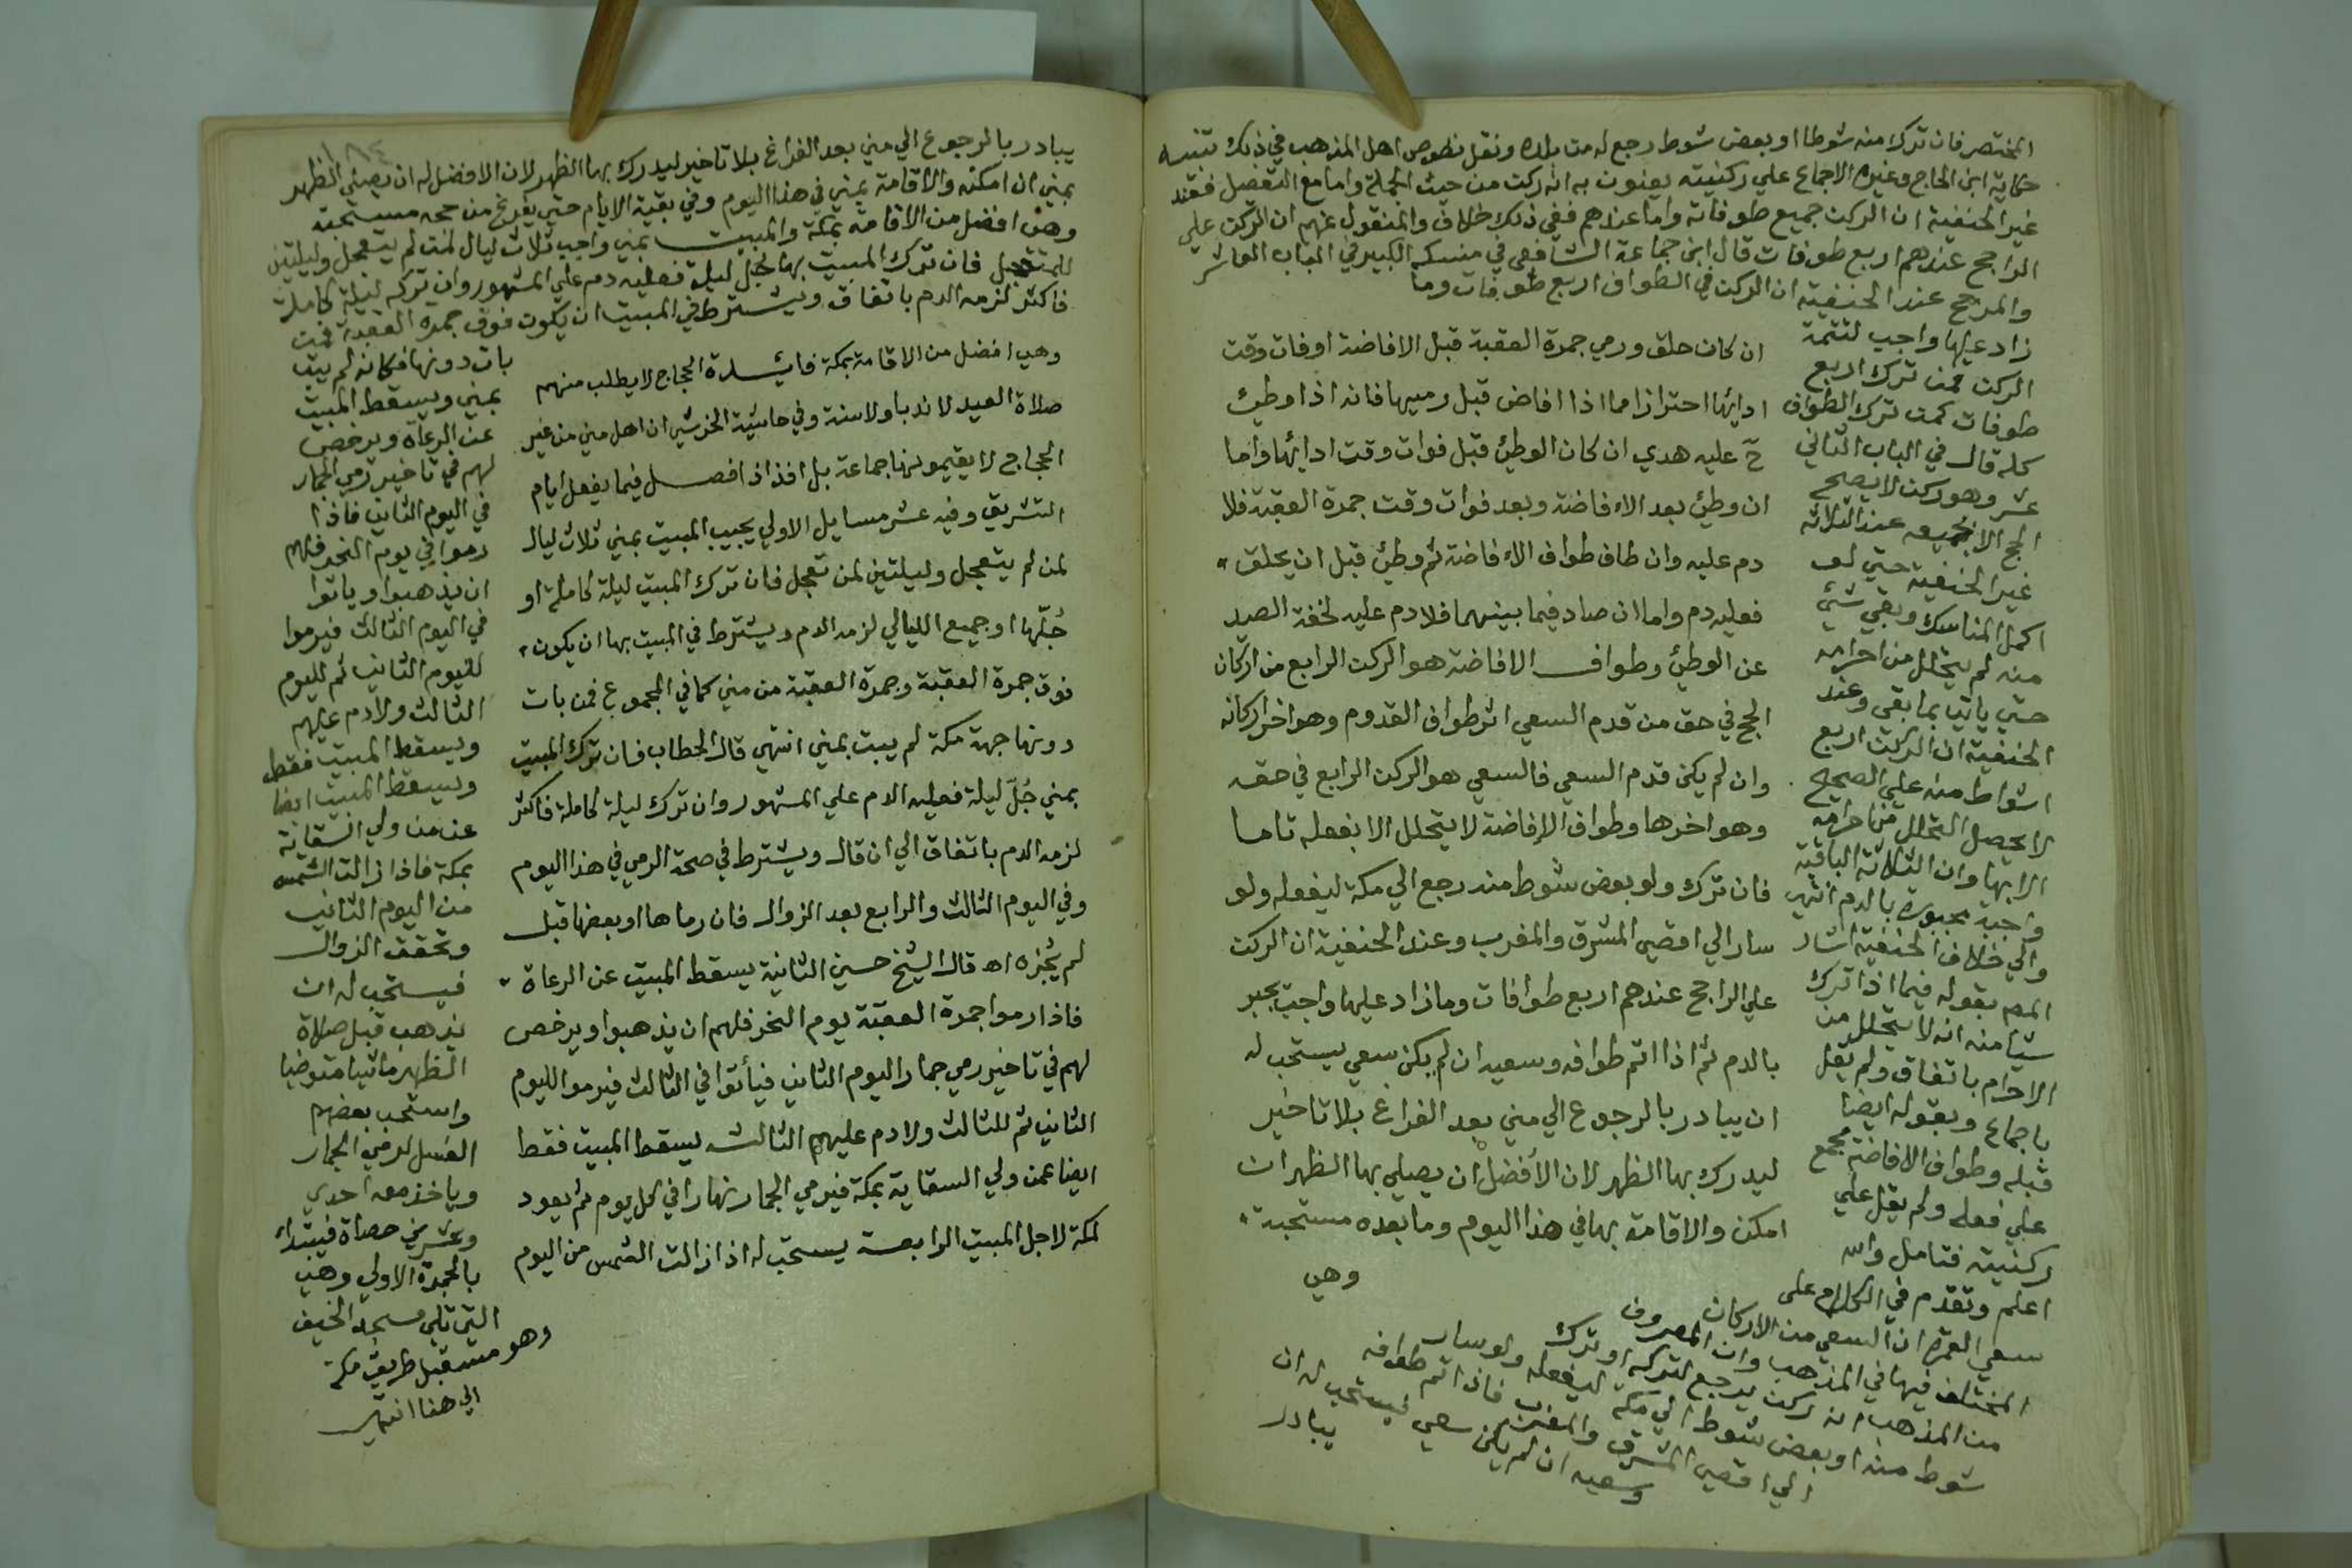 المختصر فان ترك منه شوطا او بعض شوط رجع له من بلده ونقل نصوص اهل المذهب في ذلك تنبيه
حكاية ابن الحاج وغيره الاجماع علي ركنيته يعنون به انه ركن من حيث الجملة واما مع التفصيل فعند
غير الحنفية ان الركن جميع طوفاته واما عندهم ففي ذلك خلاف والمنقول عنهم ان الركن علي
الراجح عندهم اربع طوفات قال ابن جماعة الشافعي في منسكه الكبير في الباب العاشر
والمرجح عند الحنفية ان الركن في الطواف اربع طوفات وما
زاد عليها واجب لتتمة
الركن فمن ترك اربع
طوفات كمن ترك الطواف
كله قال في الباب الثاني
عشر وهو ركن لا يصح
الحج الا بجميعه عند الثلاثة
غير الحنفية حتي لو
اكمل المناسك وبقي شيئ
منه لم يتحلل من احرامه
حتي ياتي بما بقي وعند
الحنفية ان الركن اربع
اشواط منه علي الصحيح
لا يحصل التحلل من احرامه
الا بها وان الثلاثة الباقية
واجبة مجبورة بالدم انتهي
والي خلاف الحنفية اشار
المص بقوله فيما اذا ترك
شيا منه انه لا يتحلل من
الاحرام باتفاق ولم يقل
باجماع وبقوله ايضا
قبله وطواف الافاضة مجمع
علي فعله ولم يقل علي
ركنيته فتامل والله
اعلم وتقدم في الكلام على
سعي العمرة ان السعي من الاركان
المختلف فيها في المذهب وان المعروف
من المذهب انه ركن يرجع لتركه او ترك
شوط منه او بعض شوط الي مكة ليفعله ولو سار
الي اقصي المشرق والمغرب فاذا اتم طوافه
وسعيه ان لم يكن سعي فيستحب له ان
يبادر
ان كان حلق ورمي جمرة العقبة قبل الافاضة او فات وقت
ادائها احترازا مما اذا افاض قبل رميها فانه اذا وطئ
ح عليه هدي ان كان الوطئ قبل فوات وقت ادائها واما
ان وطئ بعد الافاضة وبعد فوات وقت جمرة العقبة فلا
دم عليه وان طاف طواف الافاضة ثم وطئ قبل ان يحلق
فعليه دم واما ان صاد فيما بينهما فلا دم عليه لخفة الصيد
عن الوطئ وطواف الافاضة هو الركن الرابع من اركان
الحج في حق من قدم السعي اثر طواف القدوم وهو اخر اركانه
وان لم يكن قدم السعي فالسعي هو الركن الرابع في حقه
وهو اخرها وطواف الإفاضة لا يتحلل الا بفعله تاما
فان ترك ولو بعض شوط منه رجع الي مكة ليفعله ولو
سار الي اقصي المشرق والمغرب وعند الحنفية ان الركن
علي الراجح عندهم اربع طوافات وما زاد عليها واجب يجبر
بالدم ثم اذا اتم طوافه وسعيه ان لم يكن سعي يستحب له
ان يبادر بالرجوع الي مني بعد الفراغ بلا تاخير
ليدرك بها الظهر لان الأفضل ان يصلي بها الظهر ان
امكن والاقامة بها في هذا اليوم وما بعده مستحبة
وهي
يبادر بالرجوع الي مني بعد الفراغ بلا تاخير ليدرك بها الظهر لان الافضل له ان يصلي الظهر
بمني ان امكنه والاقامة بمني في هذا اليوم وفي بقية الايام حتي يفرغ من حجه مستحبة
وهي افضل من الاقامة بمكة والمبيت بمني واجب ثلاث ليال لمن لم يتعجل وليلتين
للمتعجل فان ترك المبيت بها جُل ليلة فعليه دم علي المشهور وان تركه ليلة كاملة
فاكثر لزمه الدم باتفاق ويشترط في المبيت ان يكون فوق جمرة العقبة فمن
بات دونها فكانه لم يبت
بمني ويسقط المبيت
عن الرعاة ويرخص
لهم في تاخير رمي الجمار
في اليوم الثاني فاذا
رموا في يوم النحر فلهم
ان يذهبوا وياتوا
في اليوم الثالث فيرموا
لليوم الثاني ثم لليوم
الثالث ولا دم عليهم
ويسقط المبيت فقط
ويسقط المبيت ايضا
عن من ولي السقاية
بمكة فاذا زالت الشمس
من اليوم الثاني
وتحقق الزوال
فيستحب له ان
يذهب قبل صلاة
الظهر ماشيا متوضيا
واستحب بعضهم
الغسل لرمي الجمار
وياخذ معه احدي
وعشرين حصاة فيبتداء
بالجمرة الاولي وهي
التي تلي مسجد الخيف
وهو مستقبل طريق مكة
الي هنا انتهي
وهي افضل من الاقامة بمكة فائـدة الحجاج لا يطلب منهم
صلاة العيد لا ندبا ولا سنة وفي حاشية الخرشي ان اهل مني من غير
الحجاج لا يقيمونها جماعة بل افذاذ افصـل فيما يفعل ايام
التشريق وفيه عشر مسايل الاولي يجب المبيت بمني ثلاث ليال
لمن لم يتعجل وليلتين لمن تعجل فان ترك المبيت ليلة كاملة او
جُلّها او جميع الليالي لزمه الدم ويشترط في المبيت بها ان يكون
فوق جمرة العقبة وجمرة العقبة من مني كما في المجموع فمن بات
دونها جهة مكة لم يبت بمني انتهي قال الحطاب فان ترك المبيت
بمني جُلّ ليلة فعليه الدم علي المشهور وان ترك ليلة كاملة فاكثر
لزمه الدم باتفاق الي ان قال ويشترط في صحة الرمي في هذا اليوم
وفي اليوم الثالث والرابع بعد الزوال فان رماها او بعضها قبل
لم يُجزه اه قال الشيخ حسين الثانية يسقط المبيت عن الرعاة
فاذا رموا جمرة العقبة يوم النحر فلهم ان يذهبوا ويرخص
لهم في تاخير رمي جمار اليوم الثاني فيأتوا في الثالث فيرموا لليوم
الثاني ثم للثالث ولا دم عليهم الثالثـه يسقط المبيت فقط
ايضا عمن ولي السقاية بمكة فيرمي الجمار نهارا في كل يوم ثم يعود
لمكة لاجل المبيت الرابعـة يستحب له اذا زالت الشمس من اليوم